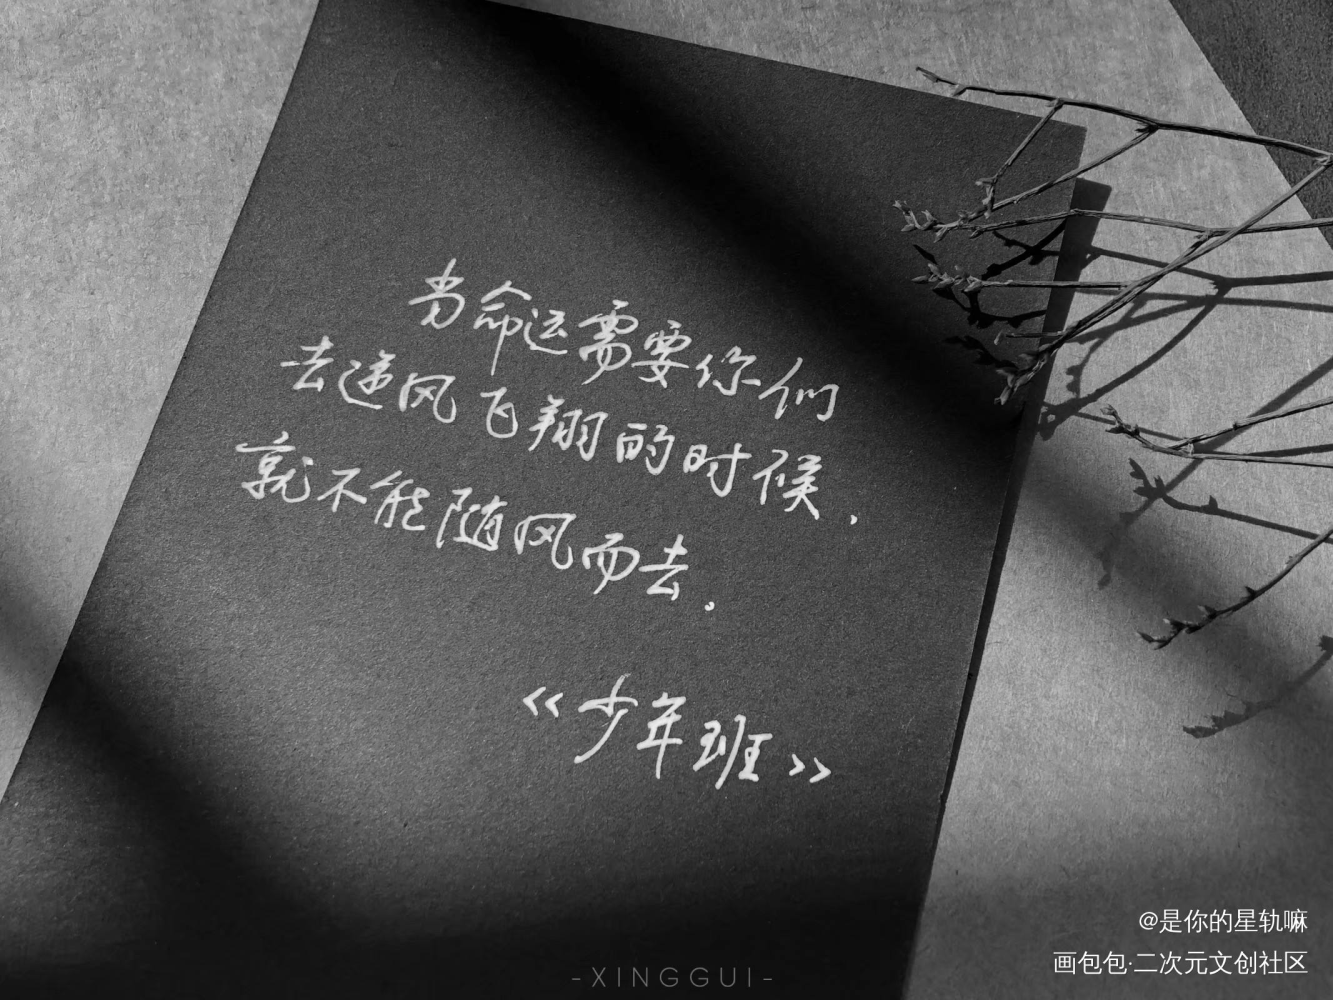 当命运需要你们
去逆风飞翔的时候，
就不能随风而去。
《少年班》
@是你的星轨嘛
画包包·二次元文创社区
-XINGGUI-